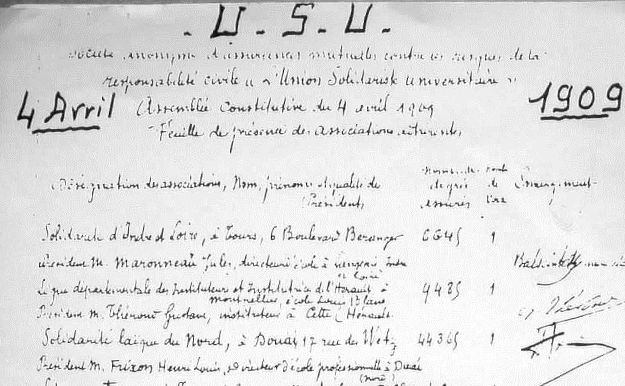 U. S. U.
Société anonyme d'assurances mutuelles contre les risques de la
responsabilité civile "L'Union Solidariste Universitaire"
4 Avril Assemblée Constitutive du 4 avril 1909 1909
Feuille de présence des associations
Désignation des associations, Nom, prénoms et qualités de Président
de de Emargement
assurés voix
Solidarité d'Indre et Loire, à Tours, 6 Boulevard Béranger 6645 1
Président M. Maronneau Jules, directeur d'école à
et Loire
Ligue départementale des Instituteurs et Institutrices de l'Hérault à 9485 1
Montpellier, école Louis Blanc
Président M. Thérond Gustave, instituteur à Cette (Hérault
Solidarité laïque du Nord, à Douai 17 rue des Wetz 44365 1
Président M. Frixon Henri Louis, directeur d'école professionnelle à Douai
(Nord)